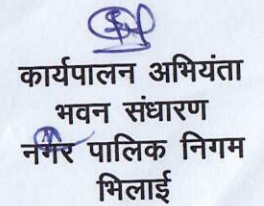 कार्यपालन अभियंता
भवन संधारण
नगर पालिक निगम
भिलाई